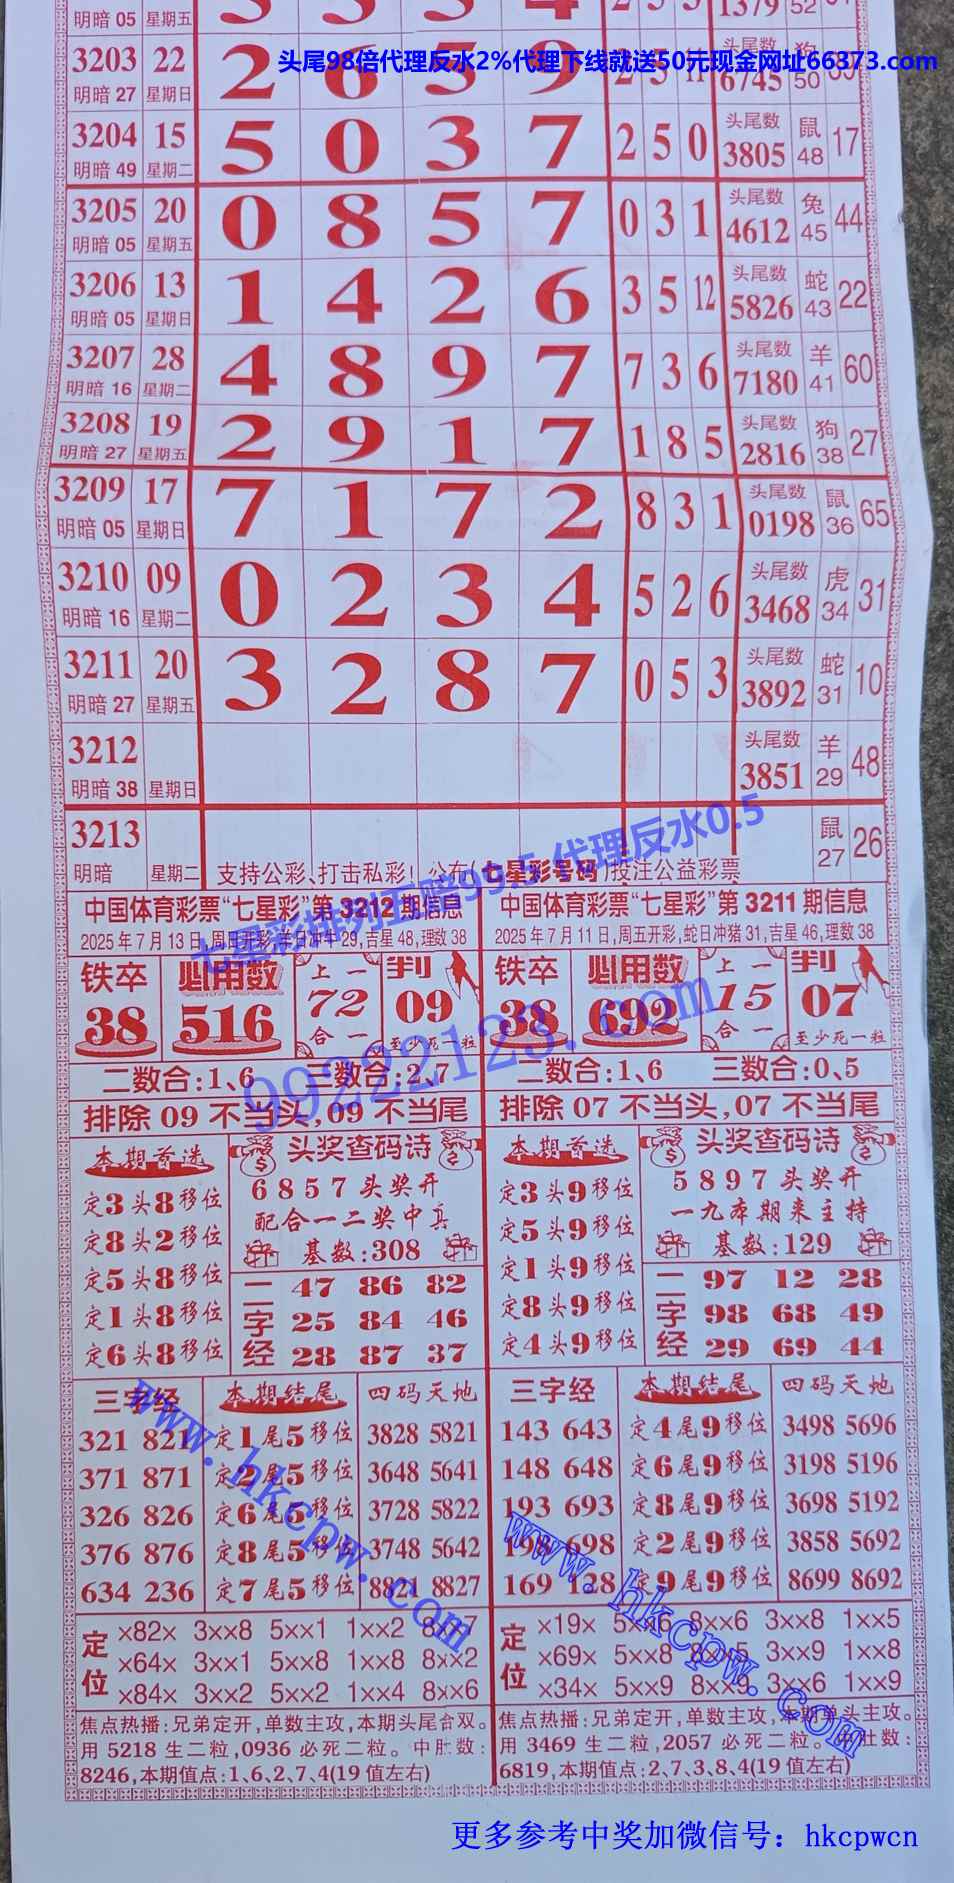 明暗 05 星期五 1379 52
3203 22 2 6 5 9 2 5 11 头尾数 狗
明暗 27 星期日 6745 50
头尾98倍代理反水2%代理下线就送50元现金网址66373.com
3204 15 5 0 3 7 2 5 0 头尾数 鼠 17
明暗 49 星期二 3805 48
3205 20 0 8 5 7 0 3 1 头尾数 兔 44
明暗 05 星期五 4612 45
3206 13 1 4 2 6 3 5 12 头尾数 蛇 22
明暗 05 星期日 5826 43
3207 28 4 8 9 7 7 3 6 头尾数 羊 60
明暗 16 星期二 7180 41
3208 19 2 9 1 7 1 8 5 头尾数 狗 27
明暗 27 星期五 2816 38
3209 17 7 1 7 2 8 3 1 头尾数 鼠 65
明暗 05 星期日 0198 36
3210 09 0 2 3 4 5 2 6 头尾数 虎 31
明暗 16 星期二 3468 34
3211 20 3 2 8 7 0 5 3 头尾数 蛇 10
明暗 27 星期五 3892 31
3212 头尾数 羊 48
明暗 38 星期日 3851 29
3213 鼠 26
明暗 星期二 支持公彩、打击私彩！公布(七星彩号码)投注公益彩票 27
七星彩排列五赔99.5 代理反水0.5
99222123.com
中国体育彩票“七星彩”第 3212 期信息
2025 年 7 月 13 日，周日开彩，羊日冲牛 29，吉星 48，理数 38
铁卒 必用数 上一 判
38 516 72 09
合一 至少死一粒
二数合：1、6 三数合：2、7
排除 09 不当头，09 不当尾
本期首选 头奖查码诗
定3头8移位 6857头奖开
定8头2移位 配合一二奖中真
定5头8移位 基数：308
定1头8移位
定6头8移位
二字经 47 86 82
25 84 46
28 87 37
三字经 本期结尾 四码天地
321 821 定1尾5移位 3828 5821
371 871 定2尾5移位 3648 5641
326 826 定6尾5移位 3728 5822
376 876 定8尾5移位 3748 5642
634 236 定7尾5移位 8821 8827
定位 ×82× 3××8 5××1 1××2 8××7
×64× 3××1 5××8 1××8 8××2
×84× 3××2 5××2 1××4 8××6
焦点热播：兄弟定开，单数主攻，本期头尾合双。
用 5218 生二粒，0936 必死二粒。中肚数：
8246，本期值点：1、6、2、7、4(19 值左右)
www.hkcpw.com
中国体育彩票“七星彩”第 3211 期信息
2025 年 7 月 11 日，周五开彩，蛇日冲猪 31，吉星 46，理数 38
铁卒 必用数 上一 判
38 692 15 07
合一 至少死一粒
二数合：1、6 三数合：0、5
排除 07 不当头，07 不当尾
本期首选 头奖查码诗
定3头9移位 5897头奖开
定5头9移位 一九本期来主持
定1头9移位 基数：129
定8头9移位
定4头9移位
二字经 97 12 28
98 68 49
29 69 44
三字经 本期结尾 四码天地
143 643 定4尾9移位 3498 5696
148 648 定6尾9移位 3198 5196
193 693 定8尾9移位 3698 5192
198 698 定2尾9移位 3858 5692
169 128 定9尾9移位 8699 8692
定位 ×19× 5××6 8××6 3××8 1××5
×69× 5××8 8××5 3××9 1××8
×34× 5××9 8××9 3××6 1××9
焦点热播：兄弟定开，单数主攻，本期单头主攻。
用 3469 生二粒，2057 必死二粒。中肚数：
6819，本期值点：2、7、3、8、4(19 值左右)
www.hkcpw.com
更多参考中奖加微信号：hkcpwcn